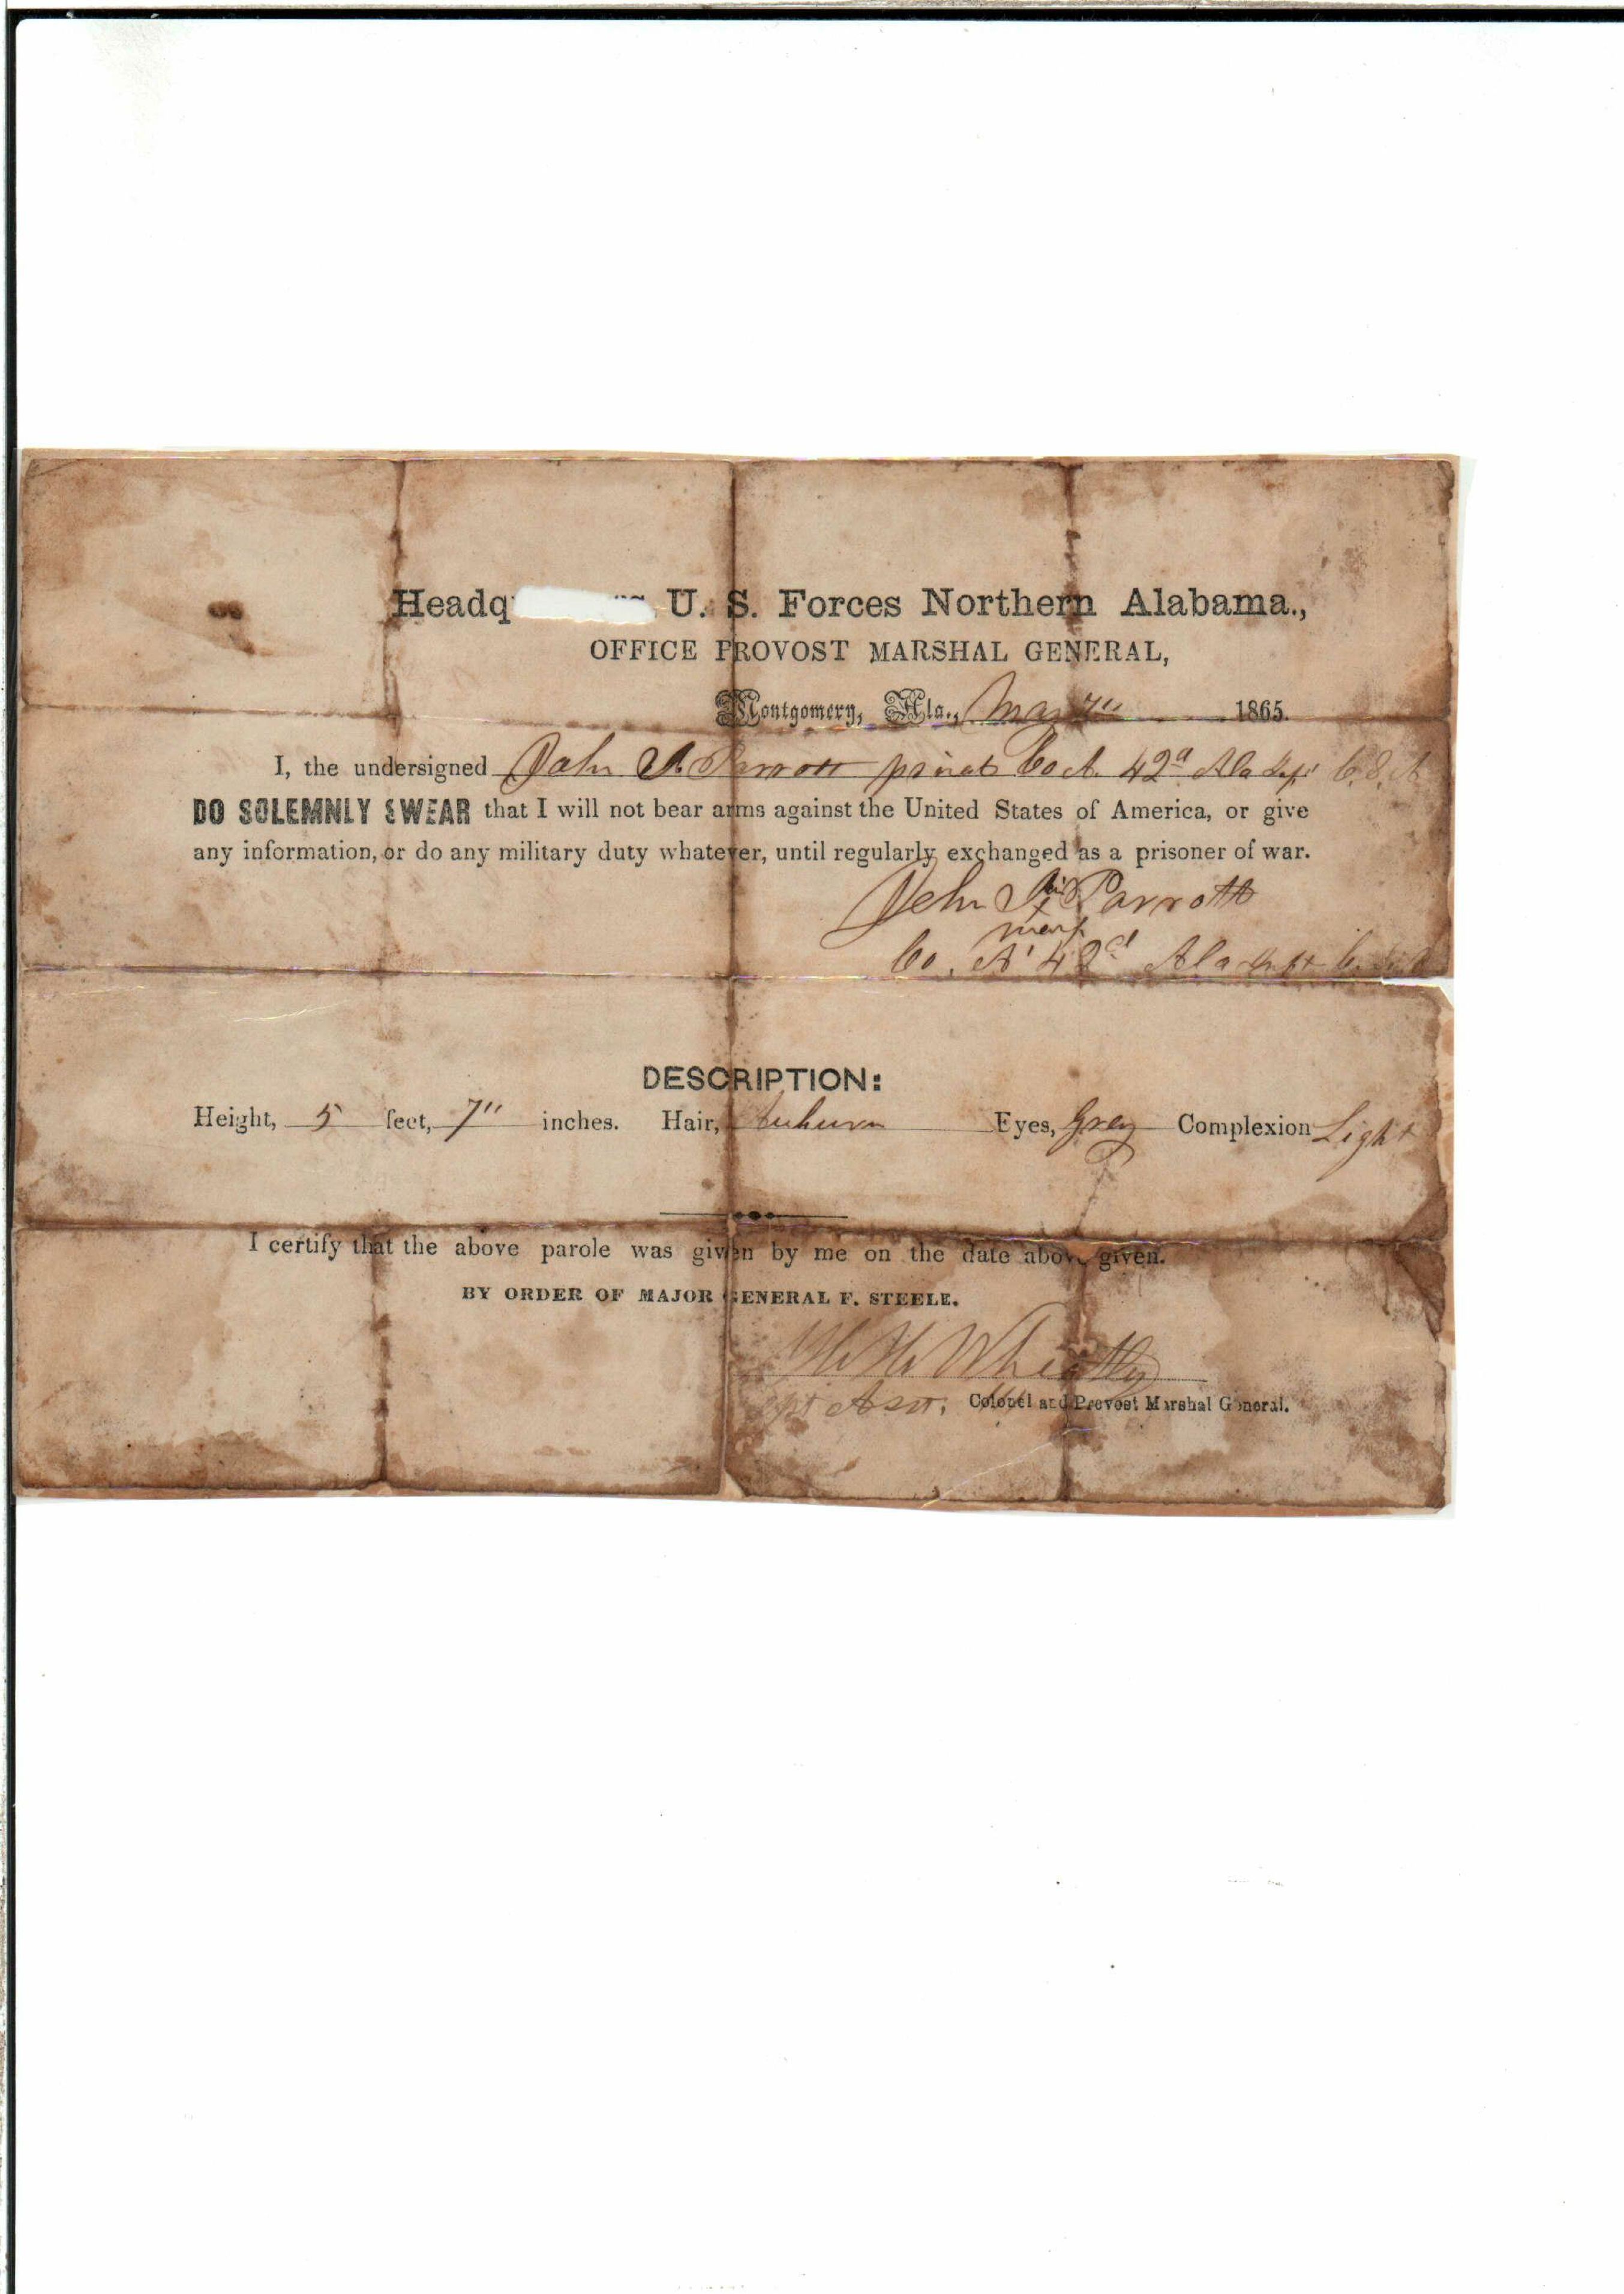 Headq rs U. S. Forces Northern Alabama.,
OFFICE PROVOST MARSHAL GENERAL,
Montgomery, Ala., May 1865.
I, the undersigned John Parrott privat Co A. 42d Ala C. S. A
DO SOLEMNLY SWEAR that I will not bear arms against the United States of America, or give
any information, or do any military duty whatever, until regularly exchanged as a prisoner of war.
John his Parrott
x
mark
Co. A 42d Ala
DESCRIPTION:
Height, 5 feet, 7" inches. Hair, Auburn Eyes, Grey Complexion Light
I certify that the above parole was given by me on the date above given.
BY ORDER OF MAJOR GENERAL F. STEELE.
Colonel and Provost Marshal General.